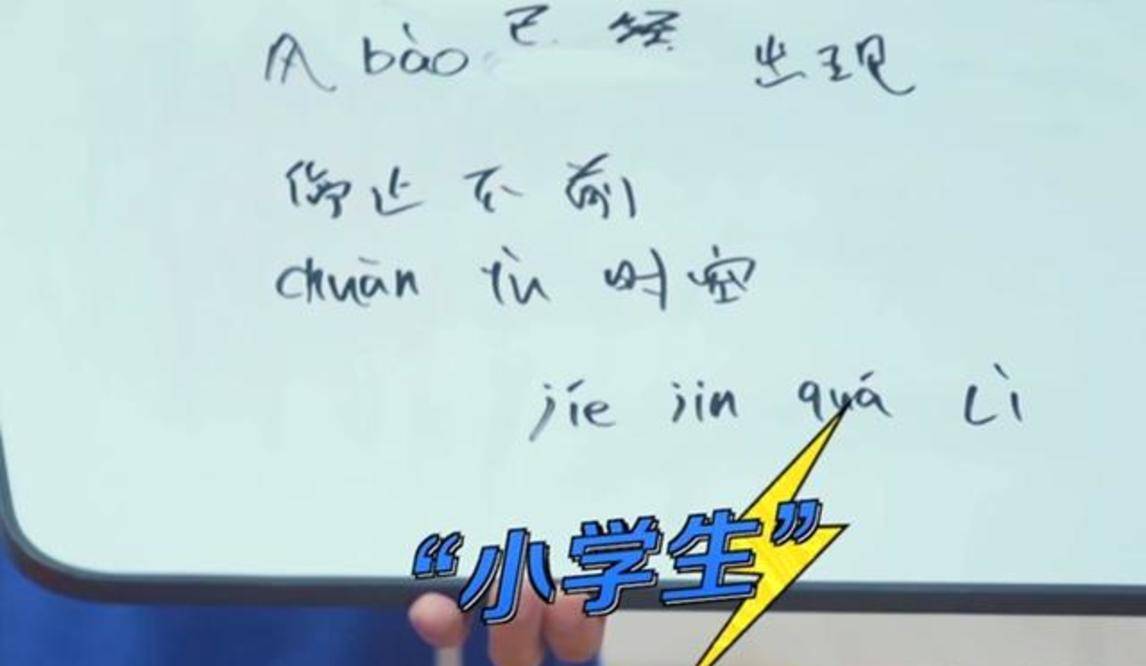 风 bào 已经 出现
停止不前
chuān yù 时空
jíe jin quá Lì
“小学生”